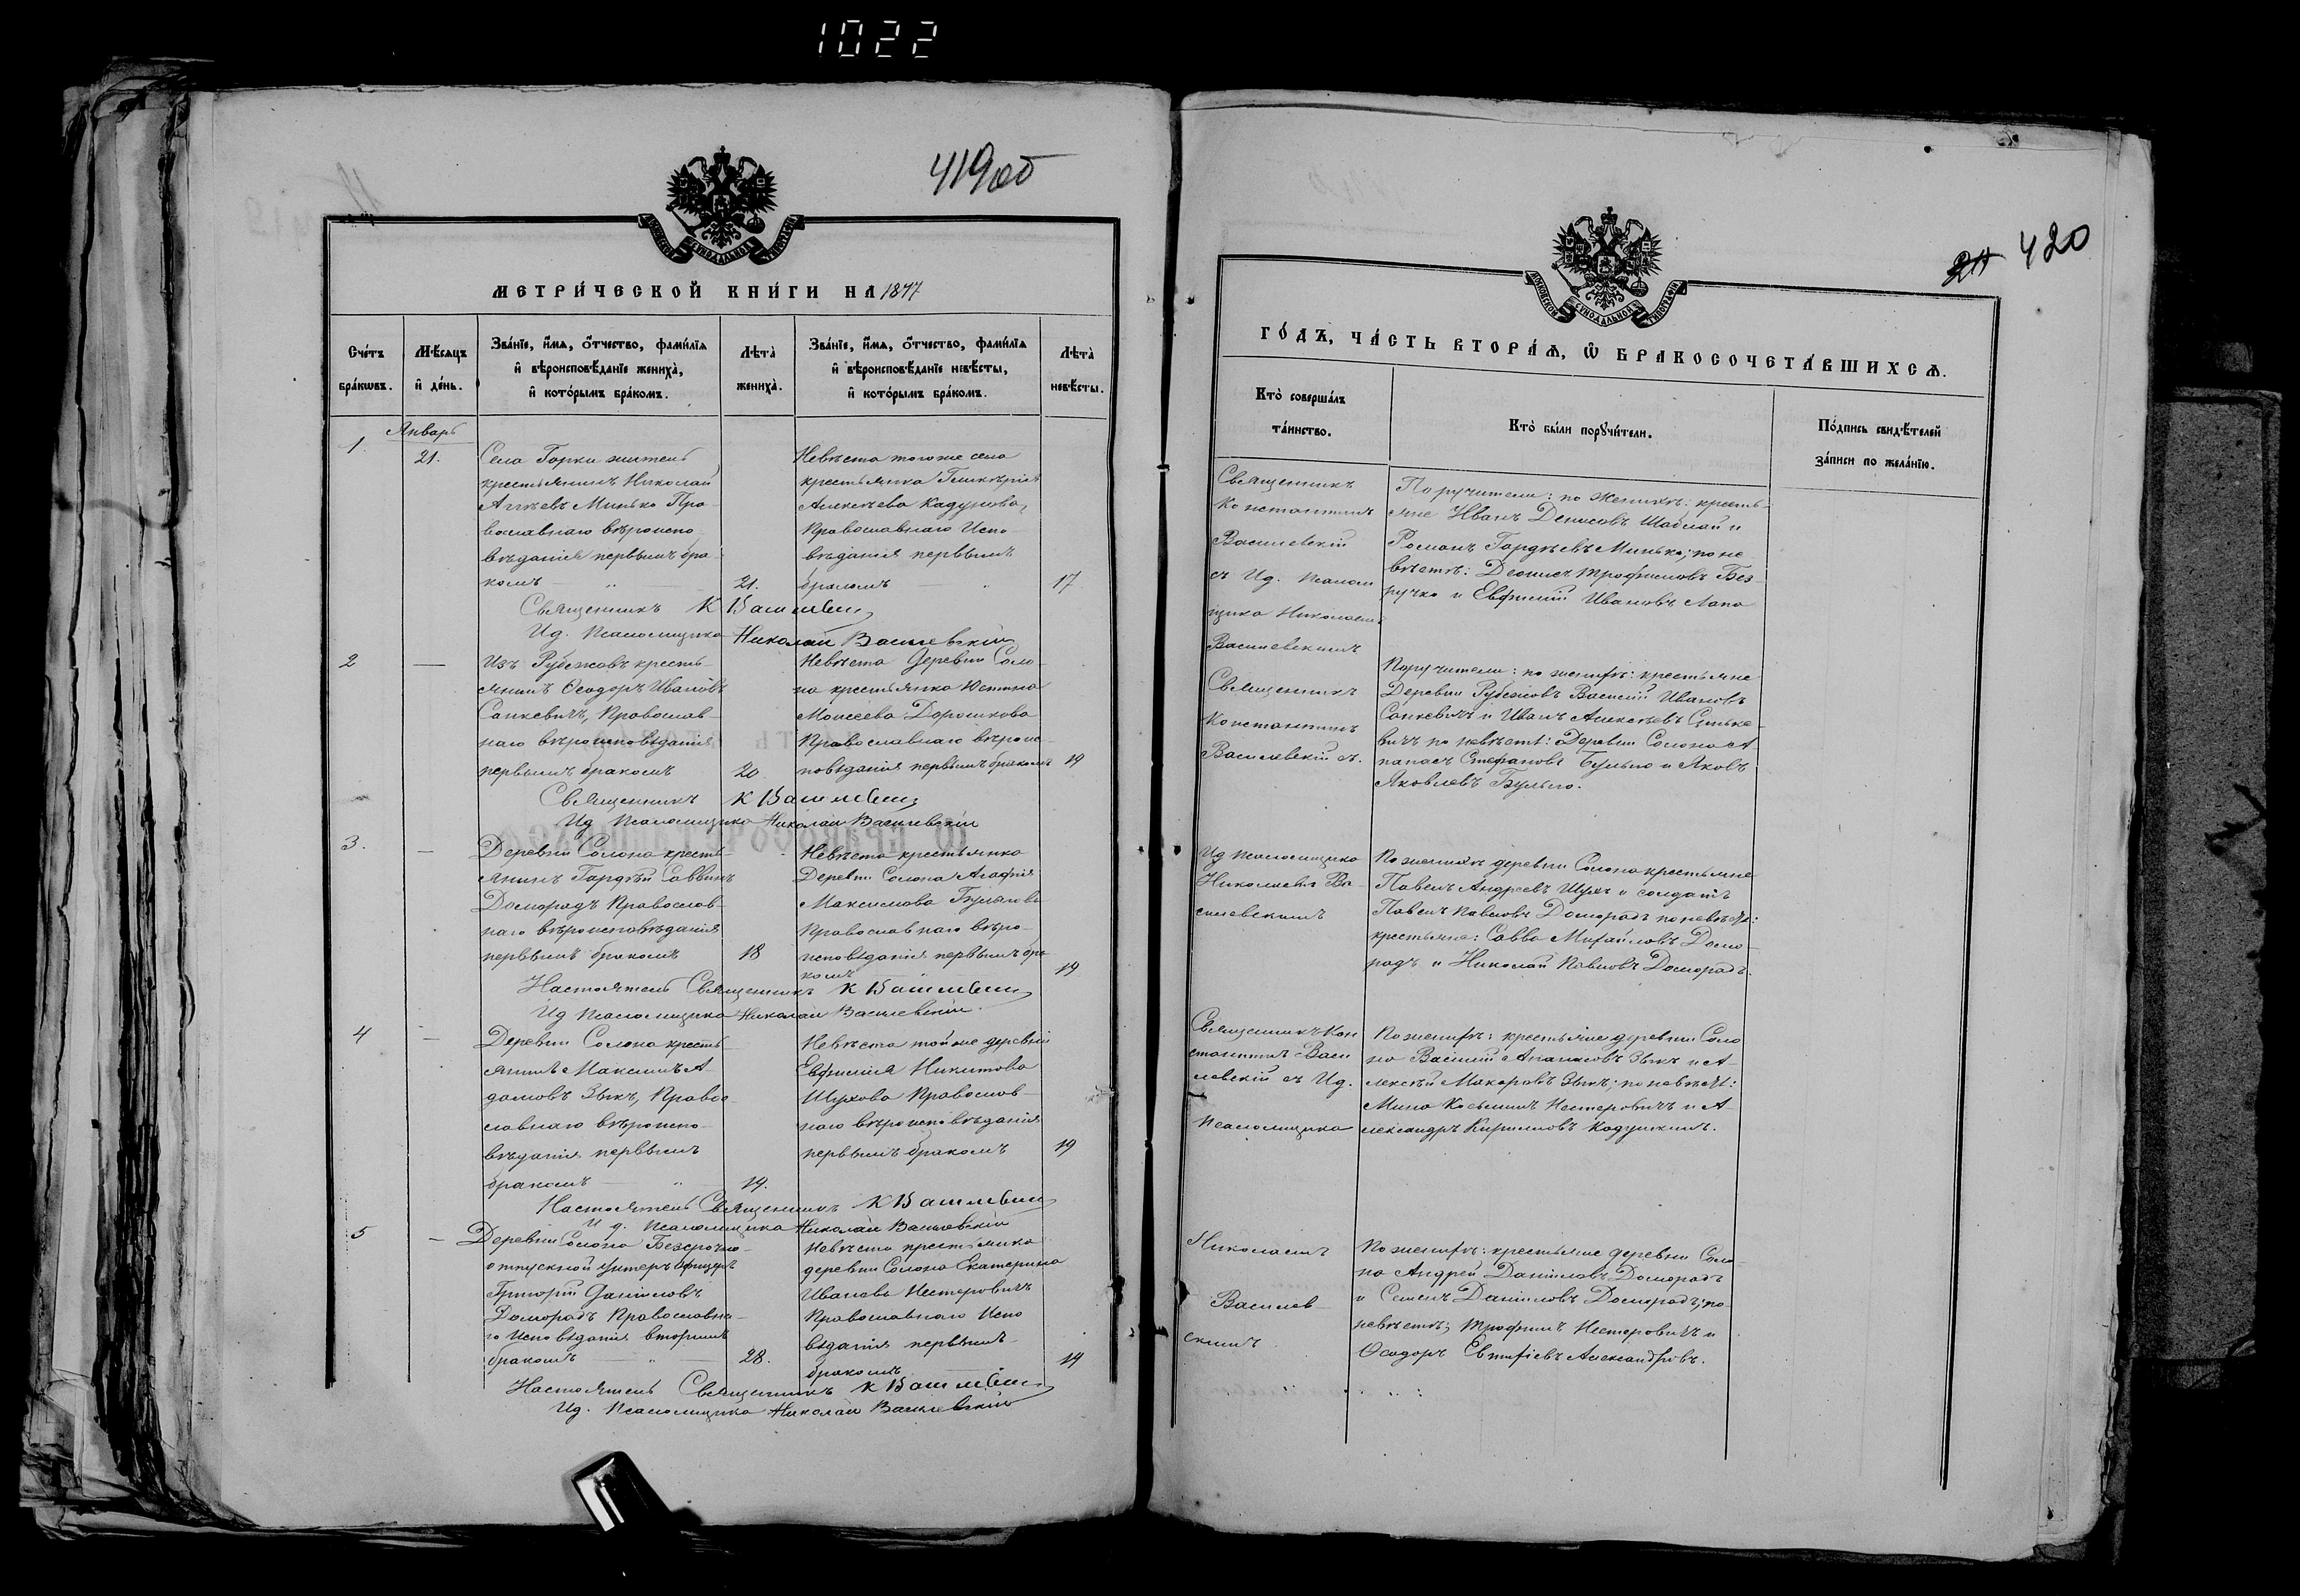 1022
419 об
МЕТРИЧЕСКОЙ КНИГИ НА 1877
Счетъ браковъ.
Мѣсяцъ и день.
Званіе, имя, отчество, фамилія и вѣроисповѣданіе жениха, и которымъ бракомъ.
Лѣта жениха.
Званіе, имя, отчество, фамилія и вѣроисповѣданіе невѣсты, и которымъ бракомъ.
Лѣта невѣсты.
Январь
1.
21.
Села Горки житель
крестьянинъ Николай
Минько Пра-
вославнаго вѣроиспо-
вѣданія первымъ бра-
комъ
21.
Невѣста тогоже села
крестьянка
Алексѣева Кадушкова,
Православнаго Испо-
вѣданія первымъ
бракомъ
17
Священникъ К Василевскій
Ид. Псаломщика Николай Василевскій
2
Изъ Рубежовъ кресть-
янинъ Ѳеодоръ Ивановъ
Санкевичъ, Православ-
наго вѣроисповѣданія
первымъ бракомъ
20
Невѣста Деревни Соло-
на крестьянка Юстина
Моисеева Дорошкова
Православнаго вѣроис-
повѣданія первымъ бракомъ
19
Священникъ К Василевскій
Ид Псаломщика Николай Василевскій
3.
Деревни Солона кресть-
янинъ Гордѣй Саввинъ
Доморадъ Православ-
наго вѣроисповѣданія
первымъ бракомъ
18
Невѣста крестьянка
Деревни Солона Агафія
Максимова
Православнаго вѣро-
исповѣданія первымъ бра-
комъ
19
Настоятель Священникъ К Василевскій
Ид Псаломщика Николай Василевскій.
4
Деревни Солона кресть-
янинъ Максимъ А-
дамовъ Зыкъ, Право-
славнаго вѣроиспо-
вѣданія первымъ
бракомъ
19.
Невѣста той же деревни
Евфимія Никитова
Шухова Православ-
наго вѣроисповѣданія
первымъ бракомъ
19
Настоятель Священникъ К Василевскій
И д. Псаломщика Николай Василевскій
5
Деревни Солона Безсрочно-
отпускной унтеръ Офицеръ
Григорій Даніиловъ
Доморадъ Православна-
го Исповѣданія вторымъ
бракомъ
28.
Невѣста крестьянка
деревни Солона Екатерина
Иванова Нестеровичъ
Православнаго Испо
вѣданія первымъ
бракомъ
19
Настоятель Священникъ К Василевскій
Ид. Псаломщика Николай Василевскій
420
ГОДЪ, ЧАСТЬ ВТОРАЯ, Ѡ БРАКОСОЧЕТАВШИХСЯ.
Кто совершалъ таинство.
Кто были поручители.
Подпись свидѣтелей записи по желанію.
Священникъ
Константинъ
Василевскій
съ Ид. Псалом
щика Николаемъ
Василевскимъ
Поручители: по женихѣ: кресть-
яне Иванъ Денисовъ Шаблай и
Романъ Гордѣевъ Минько; по не-
вѣстѣ: Денисъ Трофимовъ Без-
ручко и Евфимій Ивановъ Лапа
Священникъ
Константинъ
Василевскій съ.
Поручители: по женихѣ: крестьяне
Деревни Рубежовъ Василій Ивановъ
Санкевичъ и Иванъ Алексѣевъ Сенке-
вичъ по невѣстѣ: Деревни Солона А
панасъ Стефановъ Булыго и Яковъ
Яковлевъ Булыго.
Ид Псаломщика
Николаемъ Ва-
силевскимъ
По женихѣ деревни Солона крестьяне
Павелъ Андреевъ Шухъ и солдатъ
Павелъ Павловъ Доморадъ по невѣстѣ:
крестьяне: Савва Михайловъ Домо-
радъ и Николай Павловъ Доморадъ.
Священникъ Кон
стантинъ Васи
левскій съ Ид.
Псаломщика
По женихѣ: крестьяне деревни Соло
на Василій Апанасовъ Зыкъ и А-
лексѣй Макаровъ Зыкъ; по невѣстѣ:
Мина Косьминъ Нестеровичъ и А-
лександръ Кириловъ Кадушкинъ.
Николаемъ
Василев-
скимъ
По женихѣ: крестьяне деревни Соло-
на Андрей Даніиловъ Доморадъ
и Семенъ Даніиловъ Доморадъ; по-
невѣстѣ; Трофимъ Нестеровичъ и
Ѳеодоръ Александровъ.